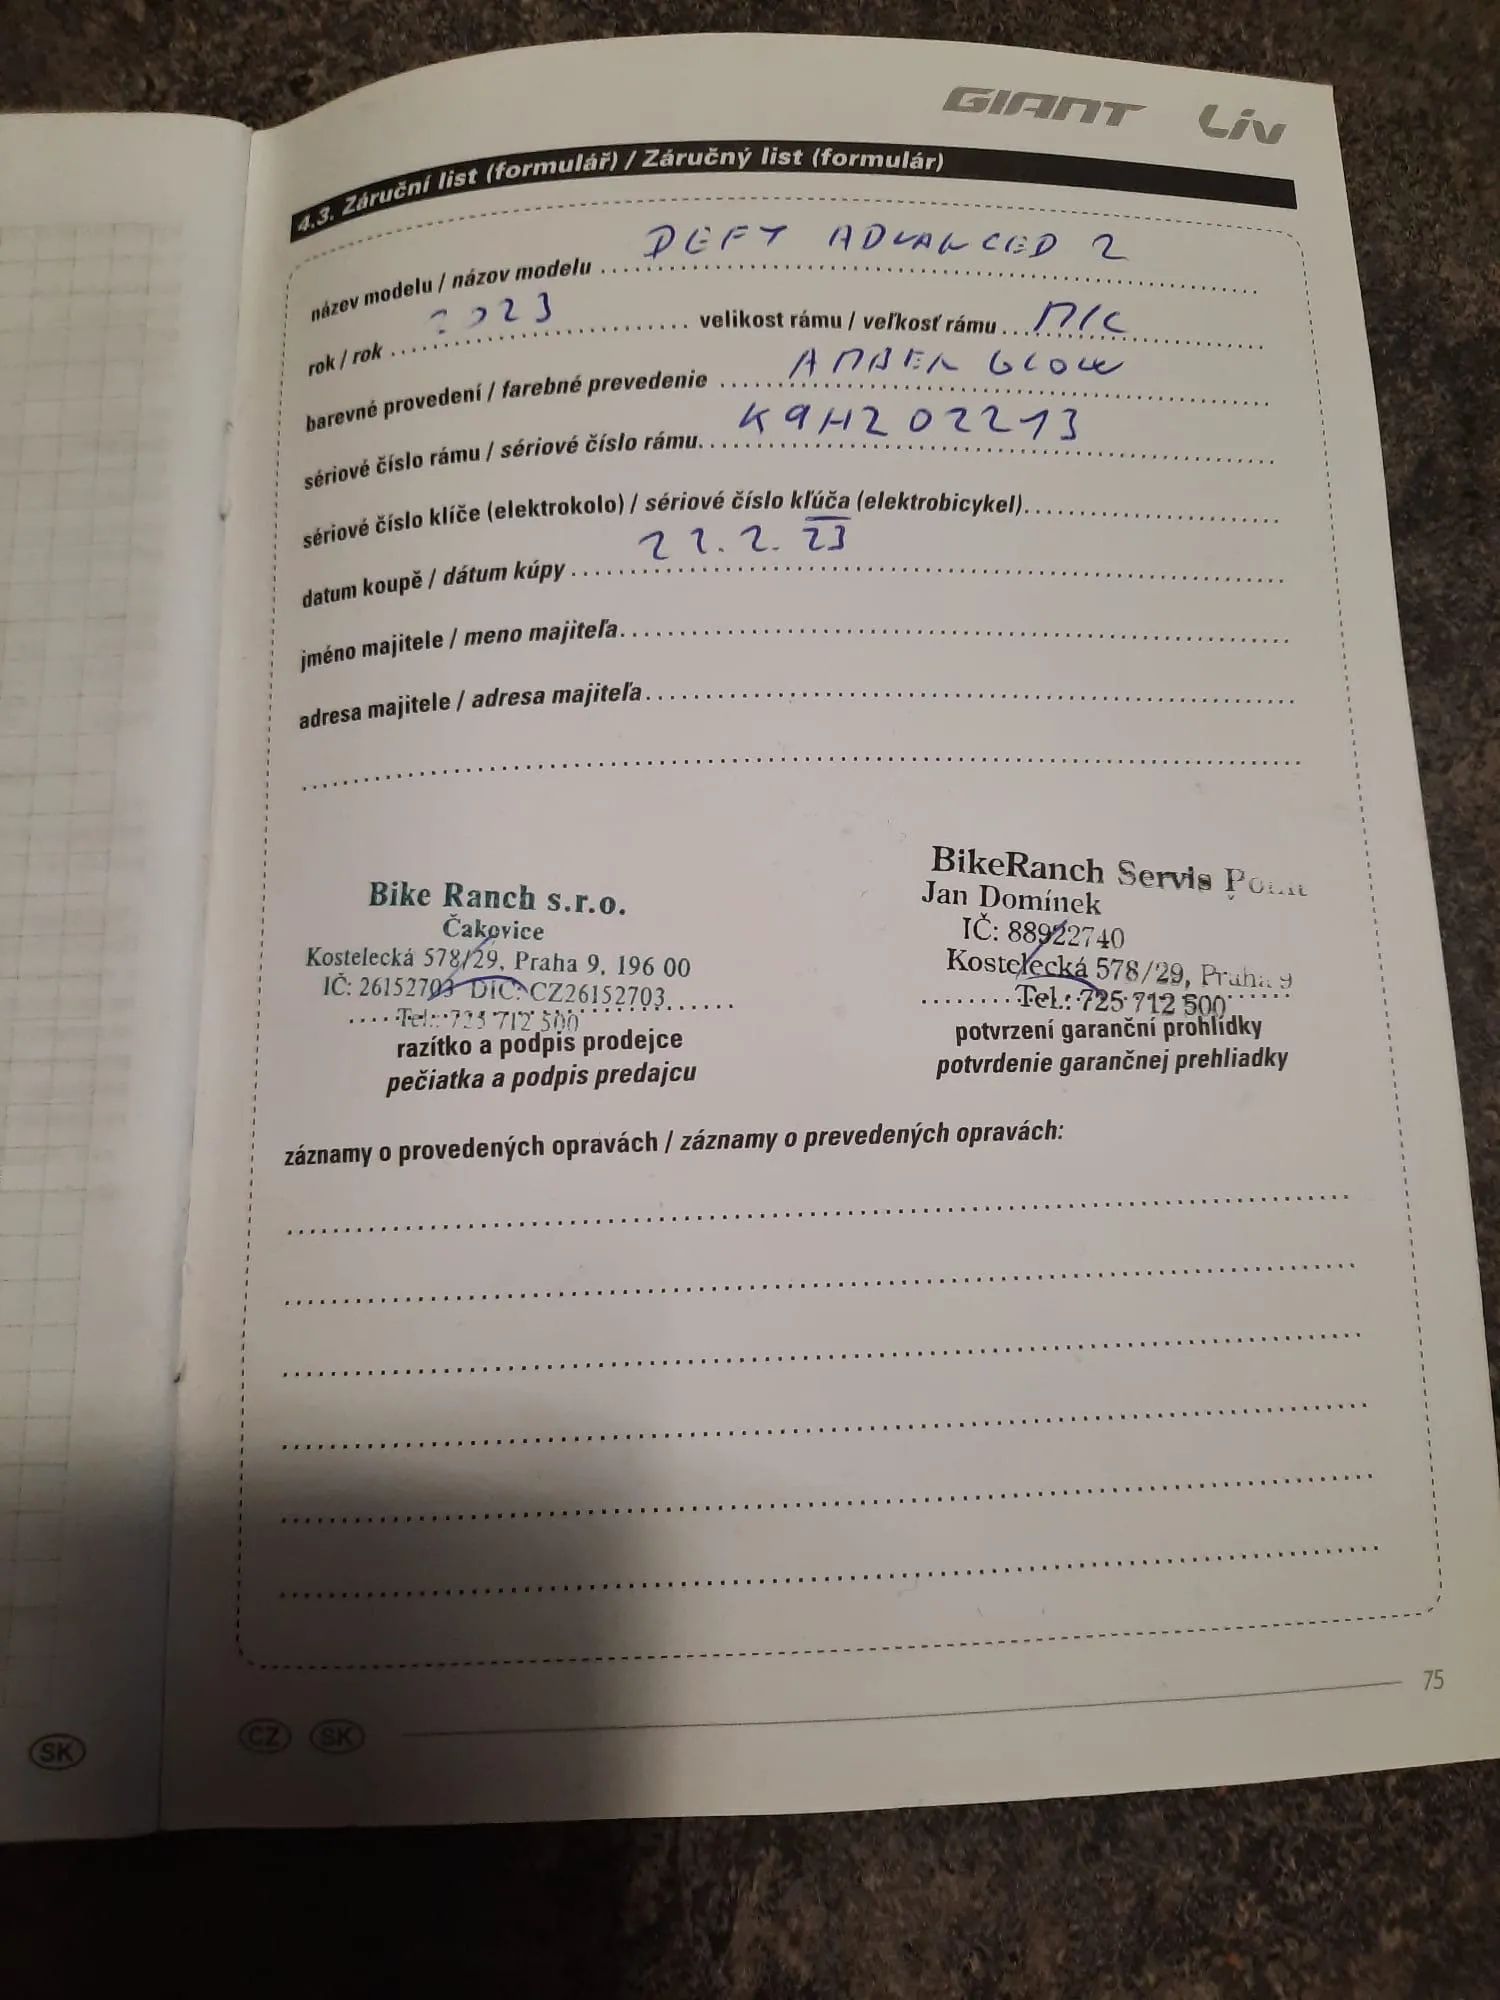 GIANT Liv
4.3. Záruční list (formulář) / Záručný list (formulár)
název modelu / názov modelu DEFY ADVANCED 2
rok / rok 2023 velikost rámu / veľkosť rámu M/L
barevné provedení / farebné prevedenie AMBER GLOW
sériové číslo rámu / sériové číslo rámu K9H202213
sériové číslo klíče (elektrokolo) / sériové číslo kľúča (elektrobicykel)
datum koupě / dátum kúpy 22.2.23
jméno majitele / meno majiteľa
adresa majitele / adresa majiteľa
Bike Ranch s.r.o.
Čakovice
Kostelecká 578/29, Praha 9, 196 00
IČ: 26152703 DIČ: CZ26152703
Tel.: 725 712 500
razítko a podpis prodejce
pečiatka a podpis predajcu
BikeRanch Servis Point
Jan Domínek
IČ: 88922740
Kostelecká 578/29, Praha 9
Tel.: 725 712 500
potvrzení garanční prohlídky
potvrdenie garančnej prehliadky
záznamy o provedených opravách / záznamy o prevedených opravách:
75
SK
CZ SK